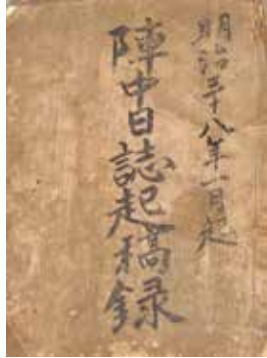 明治三十八年一月起
陣中日誌起稿錄